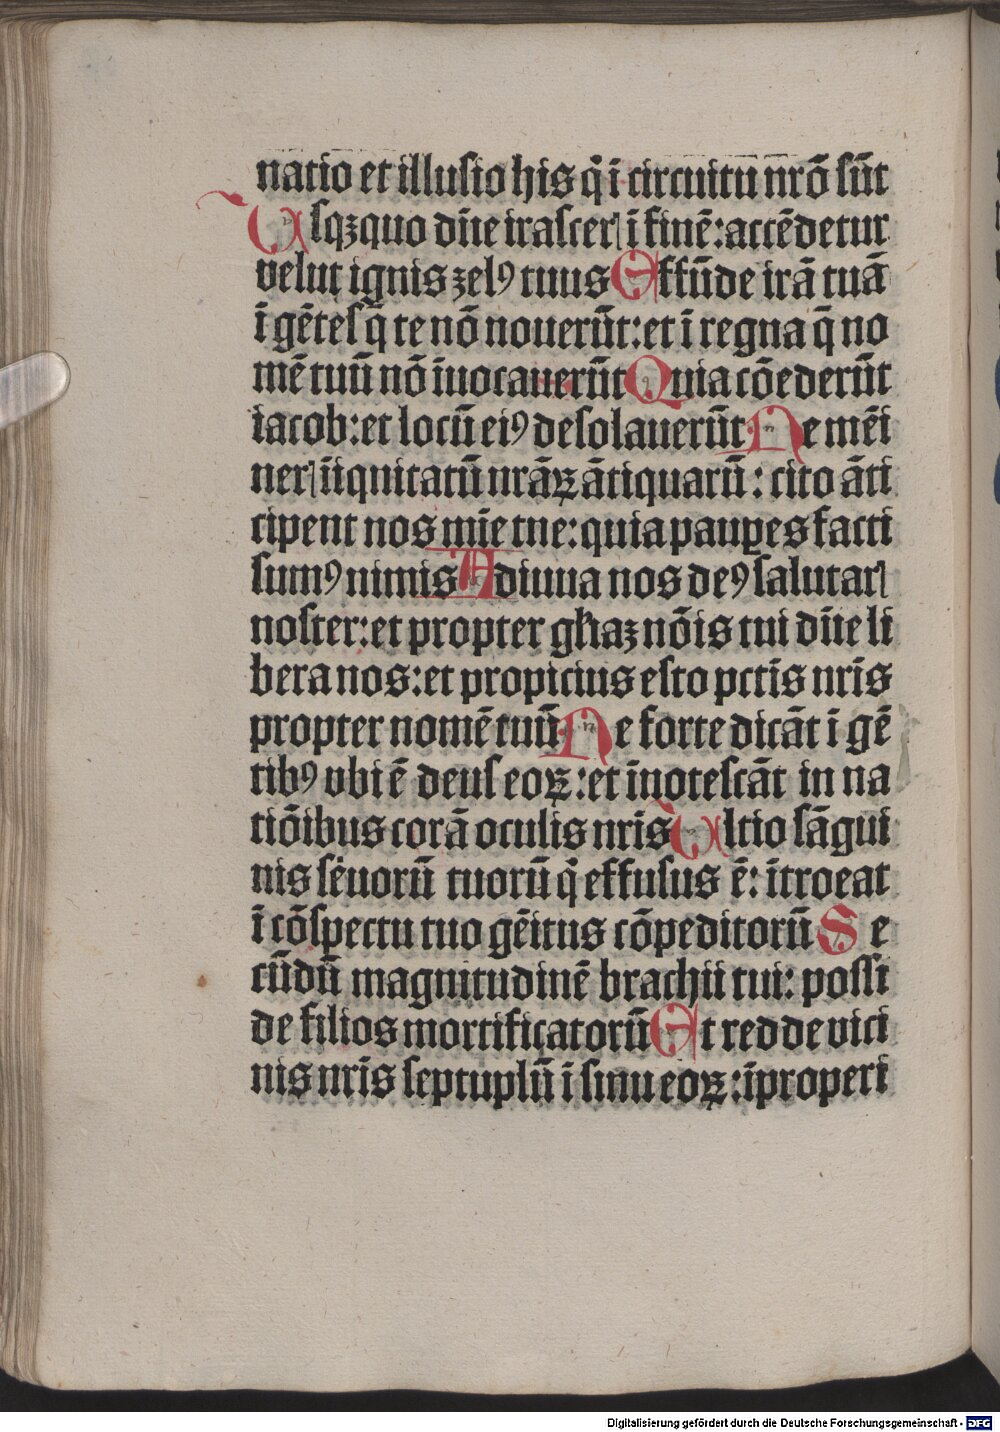 natio et illusio his q̇ ī circuitu nrō sūt
Vsqꝫquo dn̄e irascerꝭ ī finē: accēdetur
velut ignis zelꝰ tuus Effūde irā tuā
ī gētes q̄ te nō nouerūt: et ī regna q̄ no
mē tuū nō īuocauerūt Quia cōederūt
iacob: et locū eiꝰ desolauerūt Ne mēi
nerꝭ īiqnitatū nrāꝝ ātiquarū: cito āti
cipent nos mīe tue: quia pauꝑes facti
sumꝰ nimis Adiuua nos deꝰ salutarꝭ
noster: et propter gl̄iaꝫ nōis tui dn̄e li
bera nos: et propicius esto pctīs nrīs
propter nomē tuū Ne forte dicāt ī gē
tibꝰ vbi ē deus eoꝝ: et īnotescāt in na
tiōibus corā oculis nrīs Vltio sāgui
nis sėuorū tuorū q̇ effusus ē: ītroeat
ī cōspectu tuo gēitus cōpeditorū Se
cūdū magnitudinē brachii tui: possi
de filios mortificatorū Et redde vici
nis nrīs septuplū ī sinu eoꝝ: īproperi
Digitalisierung gefördert durch die Deutsche Forschungsgemeinschaft - DFG